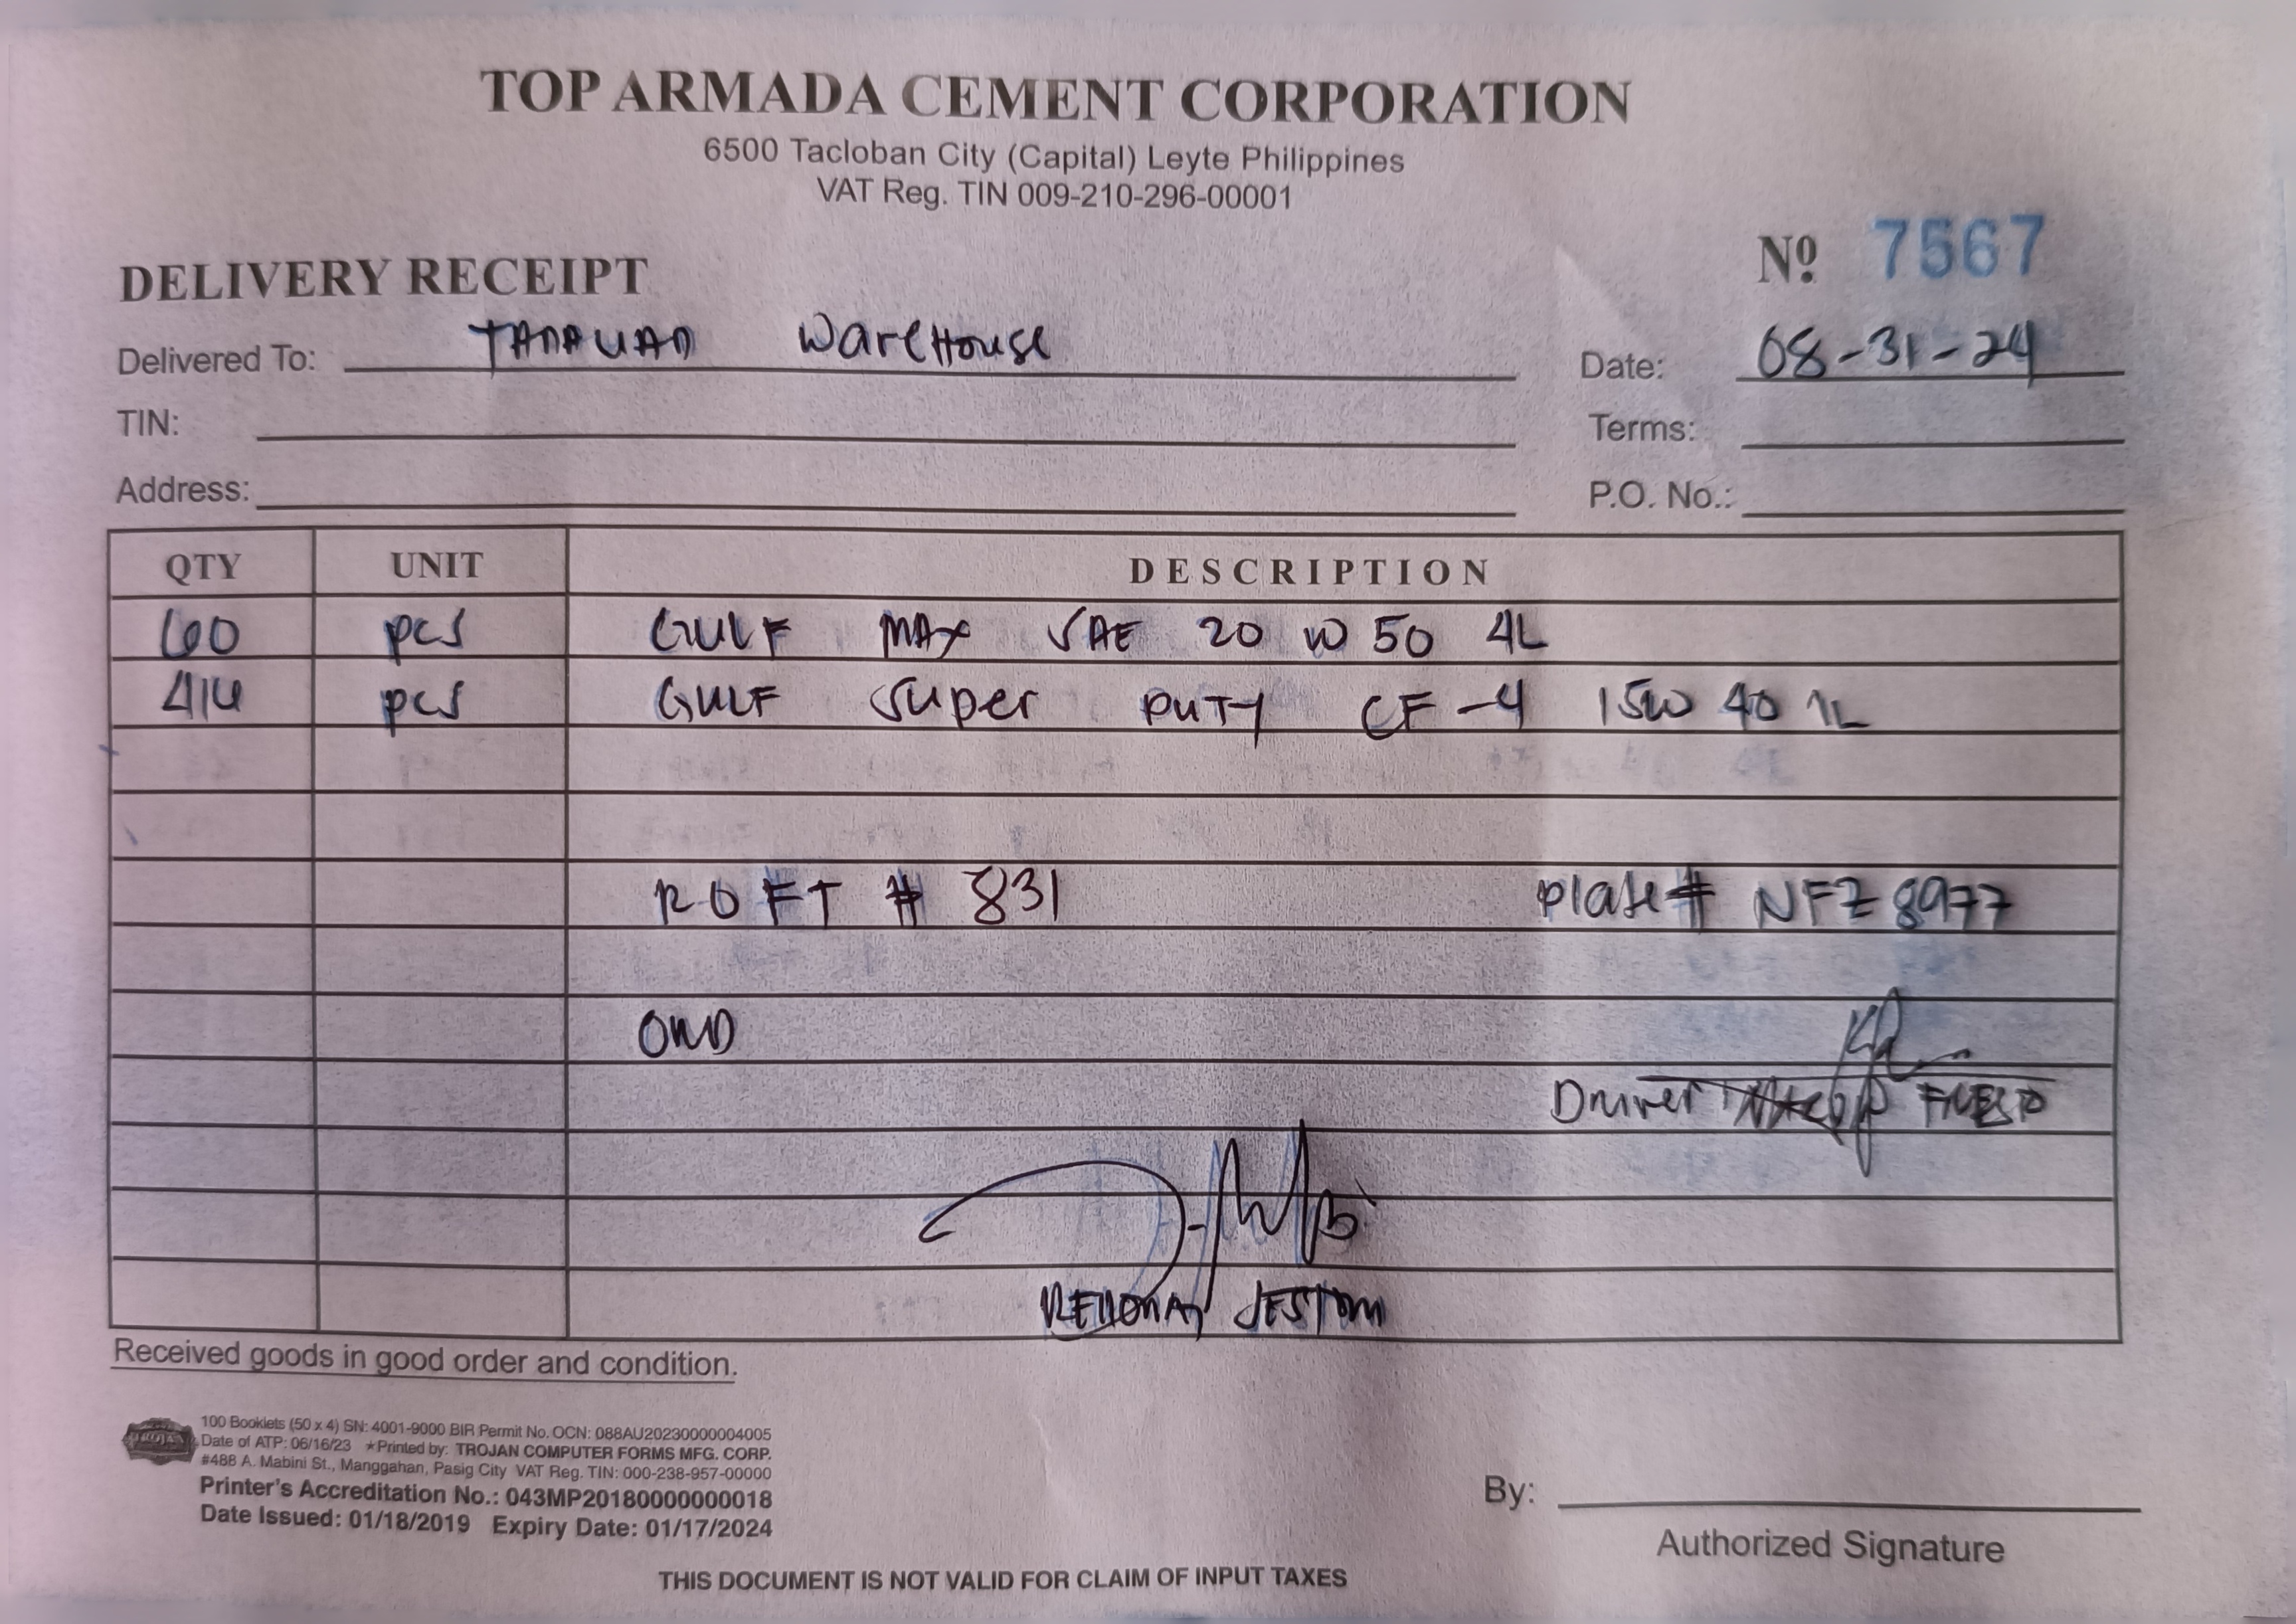 TOP ARMADA CEMENT CORPORATION
6500 Tacloban City (Capital) Leyte Philippines
VAT Reg. TIN 009-210-296-00001
DELIVERY RECEIPT Nº 7567
Delivered To: TANAUAN WareHouse Date: 08-31-24
TIN: Terms:
Address: P.O. No.:
QTY UNIT DESCRIPTION
60 pcs GULF MAX SAE 20 W 50 4L
pcs GULF Super DUTY CF-4 15W 40 1L
ROFT # 831 Plate# NFZ 8977
Driver
JESTONI
Received goods in good order and condition.
100 Booklets (50 x 4) SN: 4001-9000 BIR Permit No. OCN: 088AU20230000004005
Date of ATP: 06/16/23 ★Printed by: TROJAN COMPUTER FORMS MFG. CORP.
#488 A. Mabini St., Manggahan, Pasig City VAT Reg. TIN: 000-238-957-00000
Printer's Accreditation No.: 043MP20180000000018
Date Issued: 01/18/2019 Expiry Date: 01/17/2024
By:
Authorized Signature
THIS DOCUMENT IS NOT VALID FOR CLAIM OF INPUT TAXES